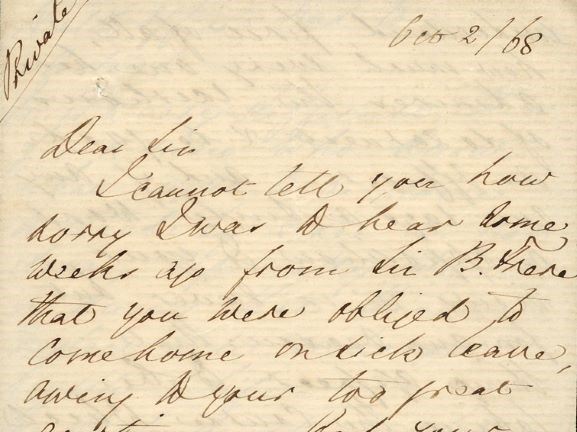 Private
Oct 2/68
Dear Sir
I cannot tell you how
sorry I was to hear some
weeks ago from Sir B. Frere
that you were obliged to
come home on sick leave,
owing to your too great